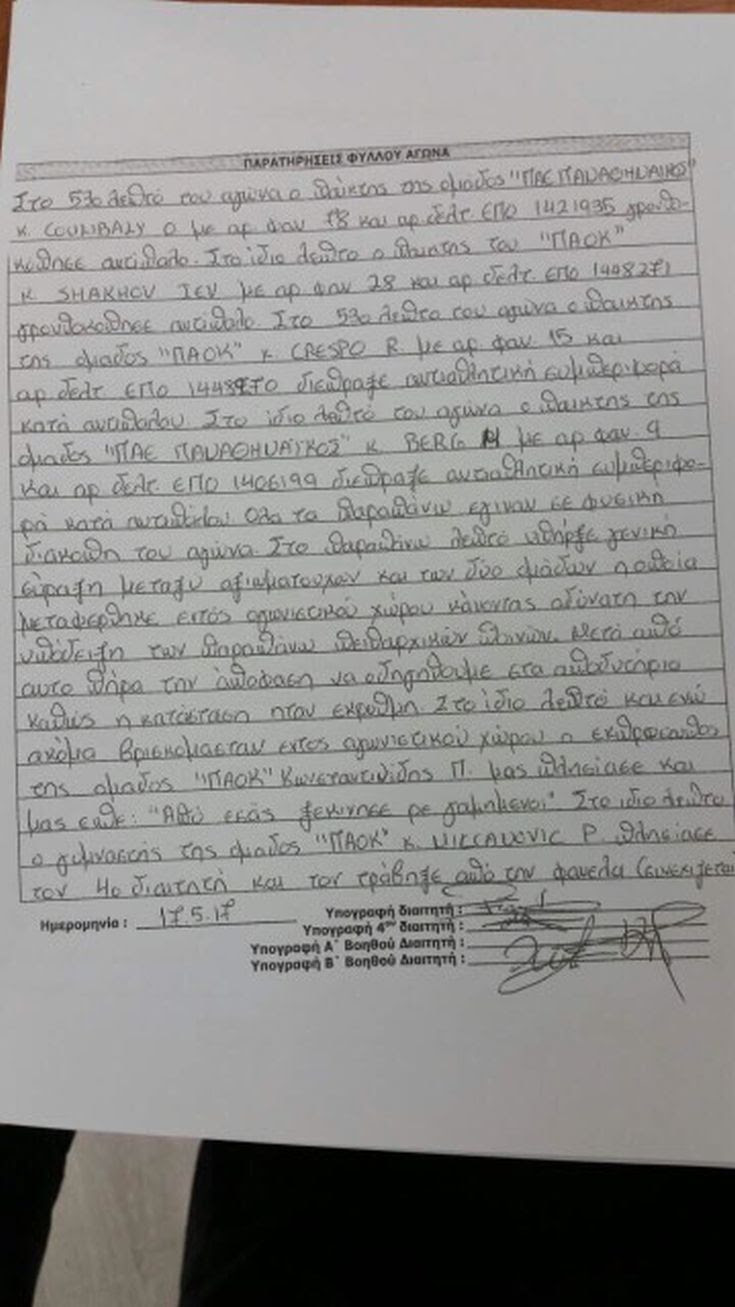 ΠΑΡΑΤΗΡΗΣΕΙΣ ΦΥΛΛΟΥ ΑΓΩΝΑ
Στο 53ο λεπτό του αγώνα ο παίκτης της ομάδος "ΠΑΕ ΠΑΝΑΘΗΝΑΙΚΟΣ"
κ. COULIBALY O με αρ. φαν 18 και αρ. δελτ. ΕΠΟ 1421935 γρονθο-
κόπησε αντίπαλο. Στο ίδιο λεπτο ο παικτης του "ΠΑΟΚ"
κ SHAKHOV ΙΕV με αρ φαν 28 και αρ δελτ. ΕΠΟ 1448271
γρονθοκόπησε αντίπαλο. Στο 53ο λεπτο του αγώνα ο παικτης
της ομαδος "ΠΑΟΚ" κ. CRESPO R. με αρ. φαν 15 και
αρ. δελτ. ΕΠΟ διέπραξε αντιαθλητική συμπεριφορά
κατά αντιπάλου. Στο ίδιο λεπτό του αγώνα ο παικτης της
ομαδος "ΠΑΕ ΠΑΝΑΘΗΝΑΪΚΟΣ" κ. BERG Μ με αρ φαν. 9
και αρ δελτ. ΕΠΟ 1406199 διέπραξε αντιαθλητική συμπεριφο-
ρά κατά αντιπάλου. Όλα τα παραπάνω έγιναν σε φυσική
διακοπη του αγώνα. Στο παραπάνω λεπτό υπήρξε γενική
σύρραξη μεταξυ αξιωματουχων και των δύο ομάδων η οποία
μεταφερθηκε εντός αγωνιστικού χώρου κάνοντας αδύνατη την
υπόδειξη των παραπάνω πειθαρχικών ποινών. Μετά από
αυτο πήρα την απόφαση να οδηγηθουμε στα αποδυτήρια
καθώς η κατάσταση ηταν εκρυθμη. Στο ίδιο λεπτό και ενώ
ακόμα βρισκόμασταν εντος αγωνιστικού χώρου ο εκπροσωπος
της ομαδος "ΠΑΟΚ" Κωνσταντινίδης Π. μας πλησίασε και
μας είπε: "Από εσάς ξεκινησε ρε γαμημένοι" Στο ιδιο λεπτο
ο γυμναστής της ομαδος "ΠΑΟΚ" κ. MILLANOVIC P. πλησίασε
τον 4ο διαιτητή και τον τράβηξε από την φανελα (συνεχιζεται
Ημερομηνία : 17.5.17
Υπογραφή διαιτητή :
Υπογραφή 4ου διαιτητή :
Υπογραφή Α΄ Βοηθού Διαιτητή :
Υπογραφή Β΄ Βοηθού Διαιτητή :